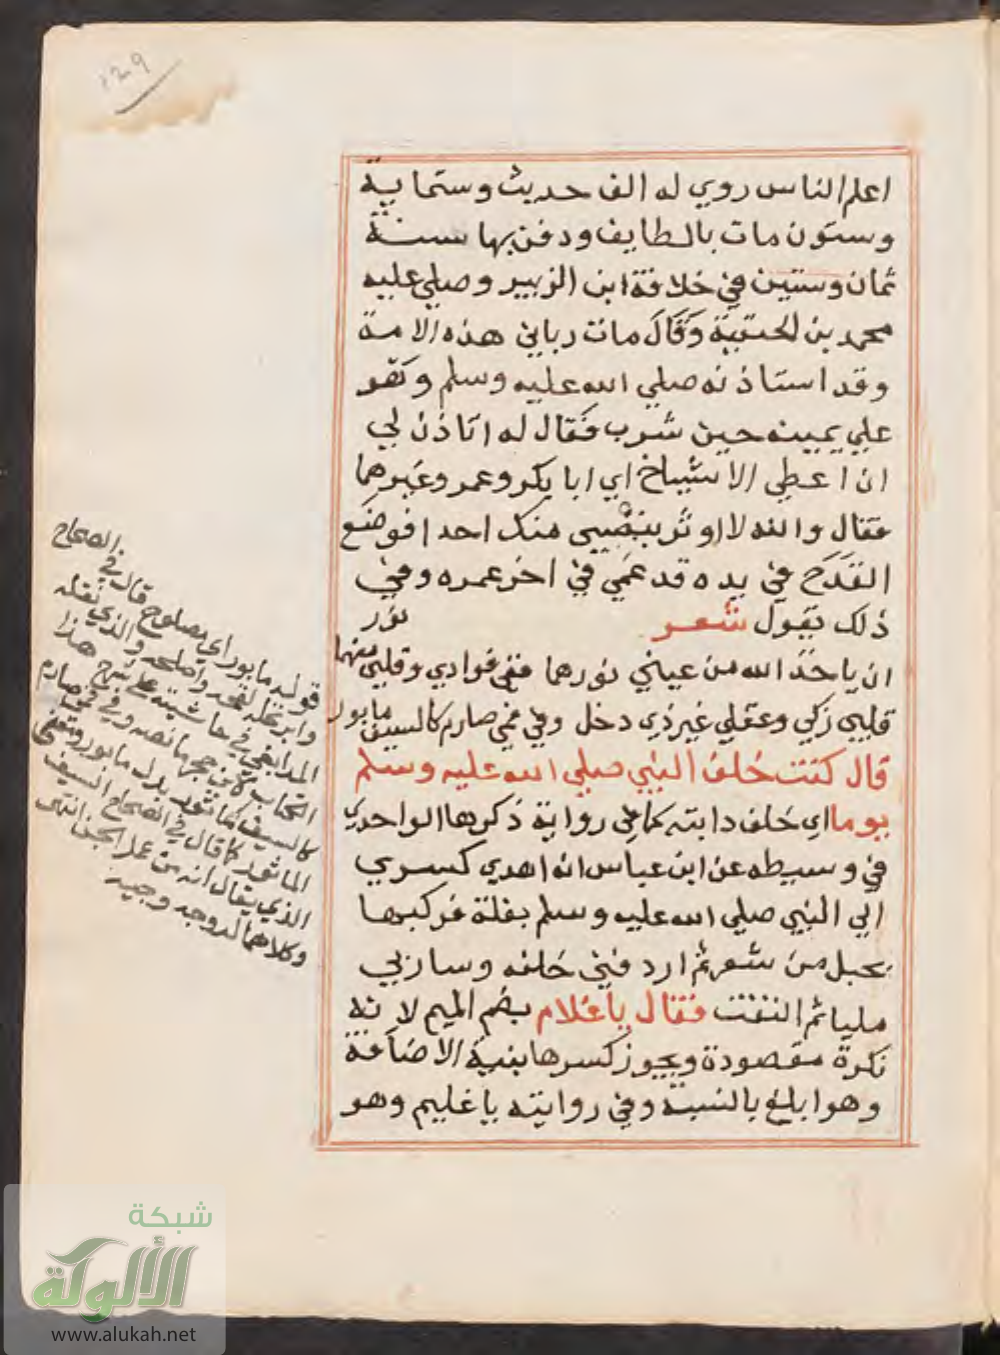 ١٢٩
اعلم الناس روي له الف حديث وستماية
وستون مات بالطايف ودفن بها سنة
ثمان وستين في خلافة ابن الزبير وصلي عليه
محمد بن الحنفية وقال مات رباني هذه الامة
وقد استاذنه صلي الله عليه وسلم وهو
علي يمينه حين شرب فقال له اتاذن لي
ان اعطي الاشياخ اي ابا بكر وعمر وغيرهما
فقال والله لا اوثر بنصيبي منك احدا فوضع
القدح في يده قد عمي في اخر عمره وفي
ذلك يقول شعر
ان ياخذ الله من عيني نورها ففي فوادي وقلبي منهما نور
قلبي زكي وعقلي غير ذي دخل وفي فمي صارم كالسيف مابور
قال كنت خلف النبي صلي الله عليه وسلم
يوما اي خلف دابته كما في رواية ذكرها الواحدي
في وسيطه عن ابن عباس انه اهدي كسري
الي النبي صلي الله عليه وسلم بغلة فركبها
بحبل من شعر ثم اردفني خلفه وسار بي
مليا ثم التفت فقال يا غلام بضم الميم لانه
نكرة مقصودة ويجوز كسرها بنية الاضافة
وهو ابلغ بالنسبة وفي روايته يا غليم وهو
قوله مابور اي مصلوح قال في الصحاح
وابر نخله لقحه واصلحه والذي نقله
المدابغي في حاشيته على شرح هذا
الكتاب لابن حجر ما نصه وفي فمي صارم
كالسيف ماثور بدل مابور ومعني
الماثور كما قال في الصحاح السيف
الذي يقال انه من عمل الجن انتهى
وكلاهما له وجه وجيه
شبكة
الألوكة
www.alukah.net